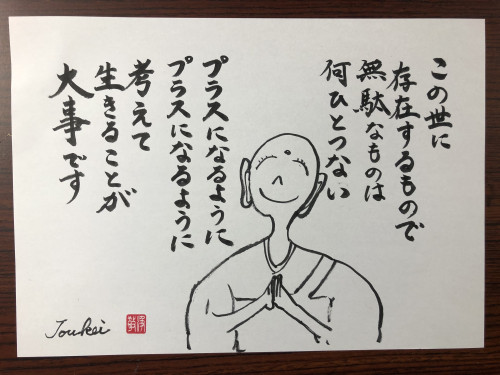 この世に
存在するもので
無駄なものは
何ひとつない
プラスになるように
プラスになるように
考えて
生きることが
大事です
Joukei